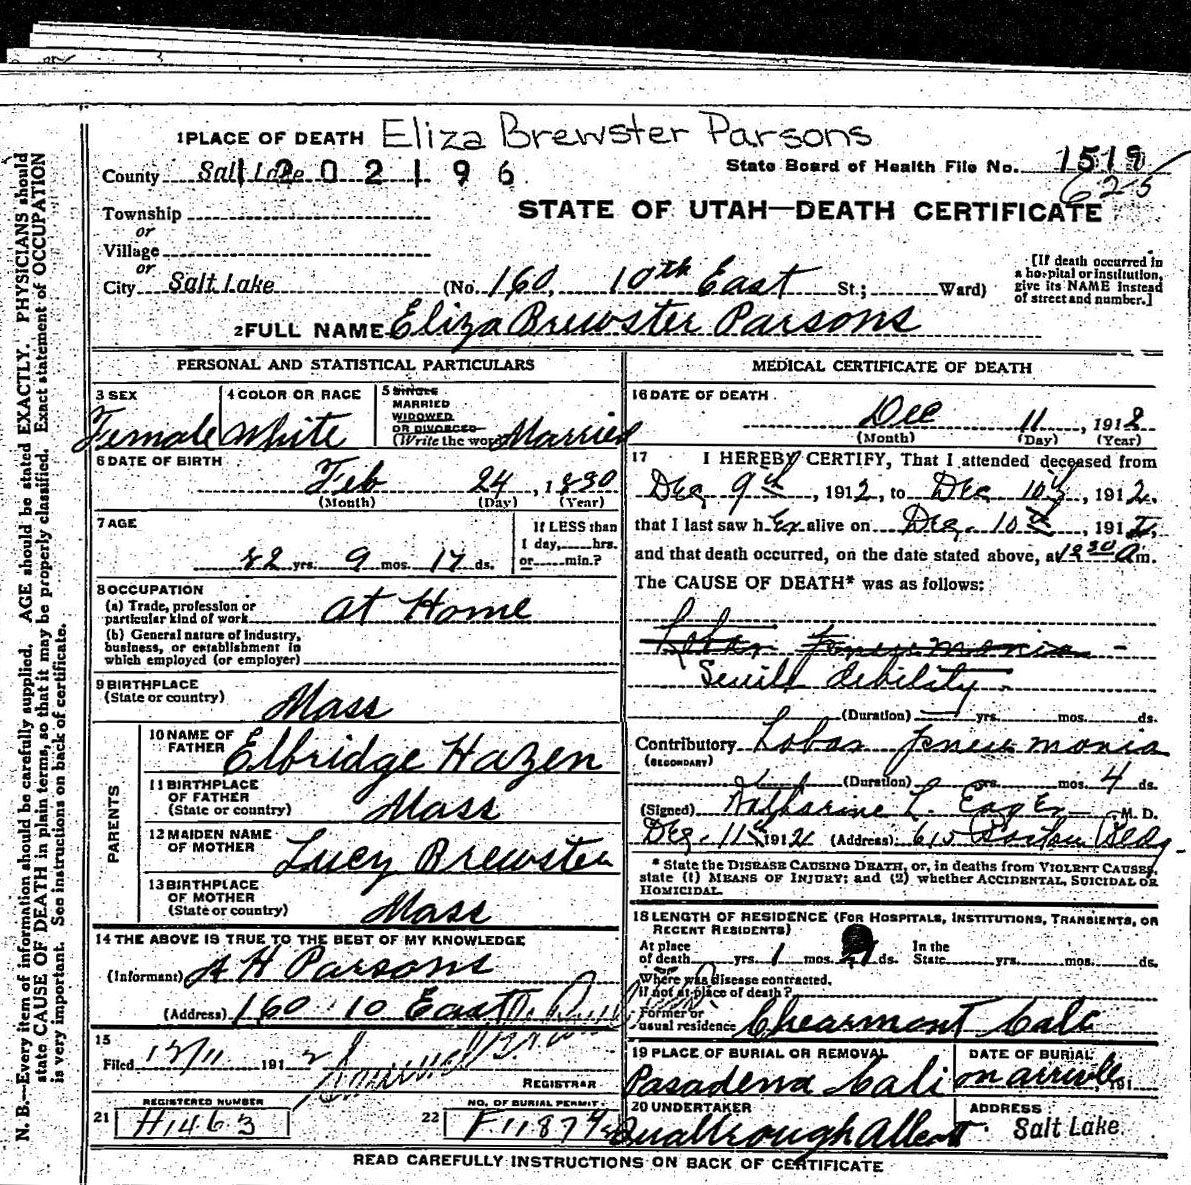 N. B.—Every item of information should be carefully supplied. AGE should be stated EXACTLY. PHYSICIANS should
state CAUSE OF DEATH in plain terms, so that it may be properly classified. Exact statement of OCCUPATION
is very important. See instructions on back of certificate.
1 PLACE OF DEATH Eliza Brewster Parsons
County Salt Lake 1202196
State Board of Health File No. 1519
625
Township
or
STATE OF UTAH—DEATH CERTIFICATE
Village
or
City Salt Lake (No. 160, 10th East St.; Ward)
[If death occurred in
a hospital or institution,
give its NAME instead
of street and number.]
2 FULL NAME Eliza Brewster Parsons
PERSONAL AND STATISTICAL PARTICULARS
3 SEX
Female
4 COLOR OR RACE
White
5 SINGLE
MARRIED
WIDOWED
OR DIVORCED
(Write the word) Married
6 DATE OF BIRTH
Feb 24, 1830
(Month) (Day) (Year)
7 AGE
82 yrs. 9 mos. 17 ds.
If LESS than
1 day, hrs.
or min.?
8 OCCUPATION
(a) Trade, profession or
particular kind of work at Home
(b) General nature of industry,
business, or establishment in
which employed (or employer)
9 BIRTHPLACE
(State or country) Mass
PARENTS
10 NAME OF
FATHER Elbridge Hazen
11 BIRTHPLACE
OF FATHER
(State or country) Mass
12 MAIDEN NAME
OF MOTHER Lucy Brewster
13 BIRTHPLACE
OF MOTHER
(State or country) Mass
14 THE ABOVE IS TRUE TO THE BEST OF MY KNOWLEDGE
(Informant) A H Parsons
(Address) 160 10 East
15
Filed 12/11 1912
REGISTRAR
REGISTERED NUMBER
21 H1463
NO. OF BURIAL PERMIT
22 F11874
MEDICAL CERTIFICATE OF DEATH
16 DATE OF DEATH
Dec 11, 1912
(Month) (Day) (Year)
17 I HEREBY CERTIFY, That I attended deceased from
Dec 9th, 1912, to Dec 10th, 1912.
that I last saw her alive on Dec. 10th, 1912,
and that death occurred, on the date stated above, at 12 30 A m.
The CAUSE OF DEATH* was as follows:
Lobar Pneumonia
Senile debility
(Duration) yrs. mos. ds.
Contributory Lobar pneumonia
(SECONDARY)
(Duration) yrs. mos. 4 ds.
(Signed) Katharine L. M. D.
Dec. 11, 1912 (Address) 615 Boston Bldg.
* State the DISEASE CAUSING DEATH, or, in deaths from VIOLENT CAUSES,
state (1) MEANS OF INJURY; and (2) whether ACCIDENTAL, SUICIDAL OR
HOMICIDAL.
18 LENGTH OF RESIDENCE (FOR HOSPITALS, INSTITUTIONS, TRANSIENTS, OR
RECENT RESIDENTS)
At place
of death yrs. 1 mos. ds.
In the
State yrs. mos. ds.
Where was disease contracted,
if not at place of death?
Former or
usual residence Clearmont Cala
19 PLACE OF BURIAL OR REMOVAL
Pasadena Cali
DATE OF BURIAL
on arrivle, 191
20 UNDERTAKER
ADDRESS
Salt Lake.
READ CAREFULLY INSTRUCTIONS ON BACK OF CERTIFICATE